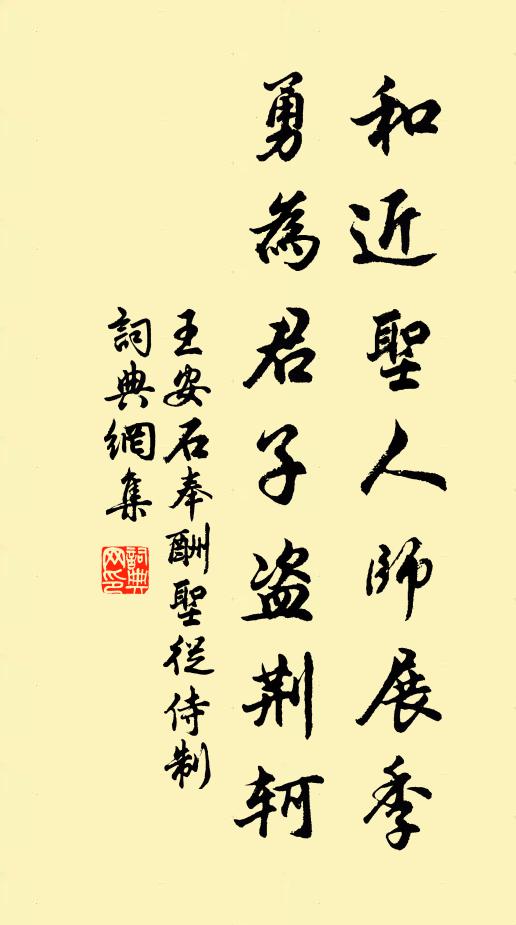 和近聖人師展季
勇為君子盗荆轲
王安石奉酬聖從侍制
詞典網集
詞典网印